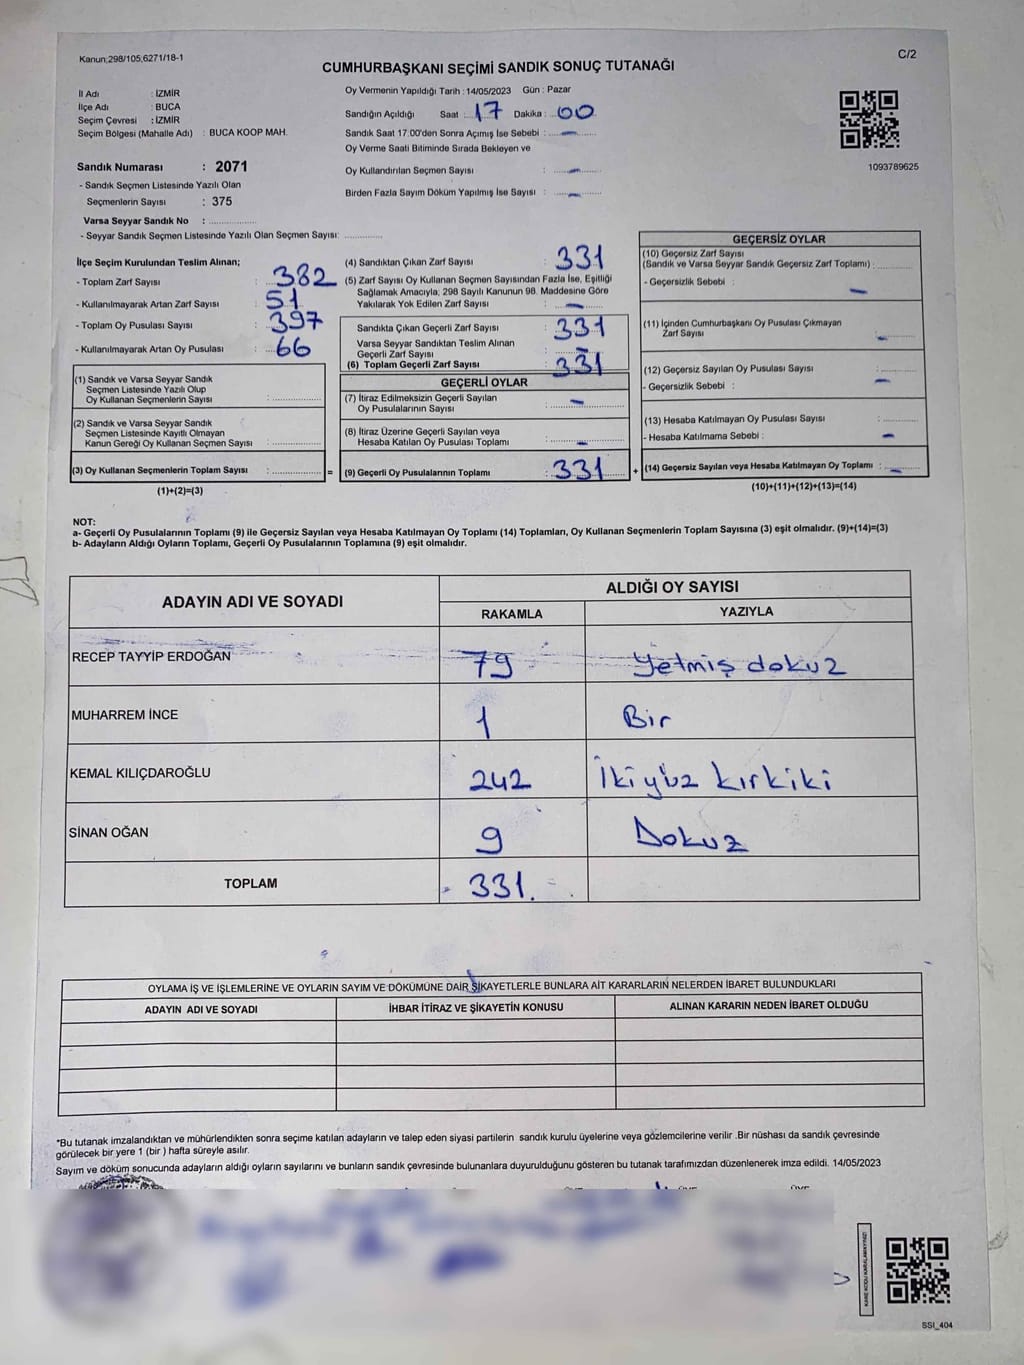 Kanun;298/105;6271/18-1
C/2
CUMHURBAŞKANI SEÇİMİ SANDIK SONUÇ TUTANAĞI
İl Adı : İZMİR
İlçe Adı : BUCA
Seçim Çevresi : İZMİR
Seçim Bölgesi (Mahalle Adı) : BUCA KOOP MAH.
Sandık Numarası : 2071
- Sandık Seçmen Listesinde Yazılı Olan
Seçmenlerin Sayısı : 375
Varsa Seyyar Sandık No :
- Seyyar Sandık Seçmen Listesinde Yazılı Olan Seçmen Sayısı:
Oy Vermenin Yapıldığı Tarih : 14/05/2023 Gün : Pazar
Sandığın Açıldığı Saat : 17 Dakika : 00
Sandık Saat 17.00'den Sonra Açımış İse Sebebi : -
Oy Verme Saati Bitiminde Sırada Bekleyen ve
Oy Kullandırılan Seçmen Sayısı : -
Birden Fazla Sayım Döküm Yapılmış İse Sayısı : -
1093789625
İlçe Seçim Kurulundan Teslim Alınan;
- Toplam Zarf Sayısı : 382
- Kullanılmayarak Artan Zarf Sayısı : 51
- Toplam Oy Pusulası Sayısı : 397
- Kullanılmayarak Artan Oy Pusulası : 66
(1) Sandık ve Varsa Seyyar Sandık
Seçmen Listesinde Yazılı Olup
Oy Kullanan Seçmenlerin Sayısı :
(2) Sandık ve Varsa Seyyar Sandık
Seçmen Listesinde Kayıtlı Olmayan
Kanun Gereği Oy Kullanan Seçmen Sayısı :
(3) Oy Kullanan Seçmenlerin Toplam Sayısı : =
(1)+(2)=(3)
(4) Sandıktan Çıkan Zarf Sayısı : 331
(5) Zarf Sayısı Oy Kullanan Seçmen Sayısından Fazla İse, Eşitliği
Sağlamak Amacıyla; 298 Sayılı Kanunun 98. Maddesine Göre
Yakılarak Yok Edilen Zarf Sayısı : -
Sandıkta Çıkan Geçerli Zarf Sayısı : 331
Varsa Seyyar Sandıktan Teslim Alınan
Geçerli Zarf Sayısı : -
(6) Toplam Geçerli Zarf Sayısı : 331
GEÇERLİ OYLAR
(7) İtiraz Edilmeksizin Geçerli Sayılan
Oy Pusulalarının Sayısı : -
(8) İtiraz Üzerine Geçerli Sayılan veya
Hesaba Katılan Oy Pusulası Toplamı : -
(9) Geçerli Oy Pusulalarının Toplamı : 331 +
GEÇERSİZ OYLAR
(10) Geçersiz Zarf Sayısı
(Sandık ve Varsa Seyyar Sandık Geçersiz Zarf Toplamı) :
- Geçersizlik Sebebi : -
(11) İçinden Cumhurbaşkanı Oy Pusulası Çıkmayan
Zarf Sayısı : -
(12) Geçersiz Sayılan Oy Pusulası Sayısı :
- Geçersizlik Sebebi : -
(13) Hesaba Katılmayan Oy Pusulası Sayısı :
- Hesaba Katılmama Sebebi : -
(14) Geçersiz Sayılan veya Hesaba Katılmayan Oy Toplamı : -
(10)+(11)+(12)+(13)=(14)
NOT:
a- Geçerli Oy Pusulalarının Toplamı (9) ile Geçersiz Sayılan veya Hesaba Katılmayan Oy Toplamı (14) Toplamları, Oy Kullanan Seçmenlerin Toplam Sayısına (3) eşit olmalıdır. (9)+(14)=(3)
b- Adayların Aldığı Oyların Toplamı, Geçerli Oy Pusulalarının Toplamına (9) eşit olmalıdır.
ADAYIN ADI VE SOYADI
ALDIĞI OY SAYISI
RAKAMLA YAZIYLA
RECEP TAYYİP ERDOĞAN 79 Yetmiş dokuz
MUHARREM İNCE 1 Bir
KEMAL KILIÇDAROĞLU 242 İkiyüz kırkiki
SİNAN OĞAN 9 Dokuz
TOPLAM 331
OYLAMA İŞ VE İŞLEMLERİNE VE OYLARIN SAYIM VE DÖKÜMÜNE DAİR ŞİKAYETLERLE BUNLARA AİT KARARLARIN NELERDEN İBARET BULUNDUKLARI
ADAYIN ADI VE SOYADI İHBAR İTİRAZ VE ŞİKAYETİN KONUSU ALINAN KARARIN NEDEN İBARET OLDUĞU
*Bu tutanak imzalandıktan ve mühürlendikten sonra seçime katılan adayların ve talep eden siyasi partilerin sandık kurulu üyelerine veya gözlemcilerine verilir .Bir nüshası da sandık çevresinde
görülecek bir yere 1 (bir ) hafta süreyle asılır.
Sayım ve döküm sonucunda adayların aldığı oyların sayılarını ve bunların sandık çevresinde bulunanlara duyurulduğunu gösteren bu tutanak tarafımızdan düzenlenerek imza edildi. 14/05/2023
KARE KODU KARALAMAYINIZ!
SSI_404